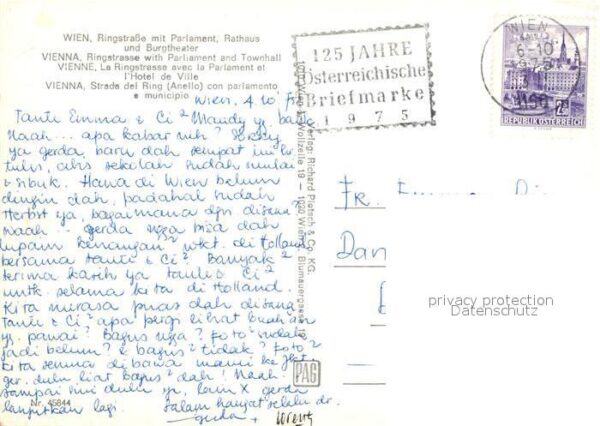 WIEN, Ringstraße mit Parlament, Rathaus
und Burgtheater
VIENNA, Ringstrasse with Parliament and Townhall
VIENNE, La Ringstrasse avec la Parlament et
l'Hotel de Ville
VIENNA, Strada del Ring (Anello) con parlamento
e municipio
Wien, 4 10
Tante Emma & Ci² Maudy yg baik
Naah... apa kabar nih?
ya gerda baru dah sempat
tulis, abis sekolah sudah mulai
& sibuk. Hawa di Wien belum
dingin dah, padahal sudah
Herbst ya, bagaimana dgn disana?
Waah... gerda ngga bisa dah
lupain kenangan² wkt. di Holland
bersama tante & Ci². Banyak²
terima kasih ya tante & Ci²
untk. selama kita di Holland.
Kita merasa puas dah disana
Tante & Ci² apa pergi lihat
yg. pawai? Bagus ngga? Foto² sudah
jadi belum? & bagus² tidak? Foto²
kita semua di bawa mami ke
ger. dulu liat bagus² dah! Naah
sampai sini dulu ya, lain X gerda
lanjutkan lagi. Salam hangat selalu dr.
gerda +
Nr. 45844
Verlag: Richard Pietsch & Co. KG.
1010 Wien, Wollzeile 19 - 1200 Wien, Blumauergasse
PAG
125 JAHRE
Österreichische
Briefmarke
1975
WIEN
6-10
1150
REPUBLIK ÖSTERREICH
Fr.
Dan
privacy protection
Datenschutz